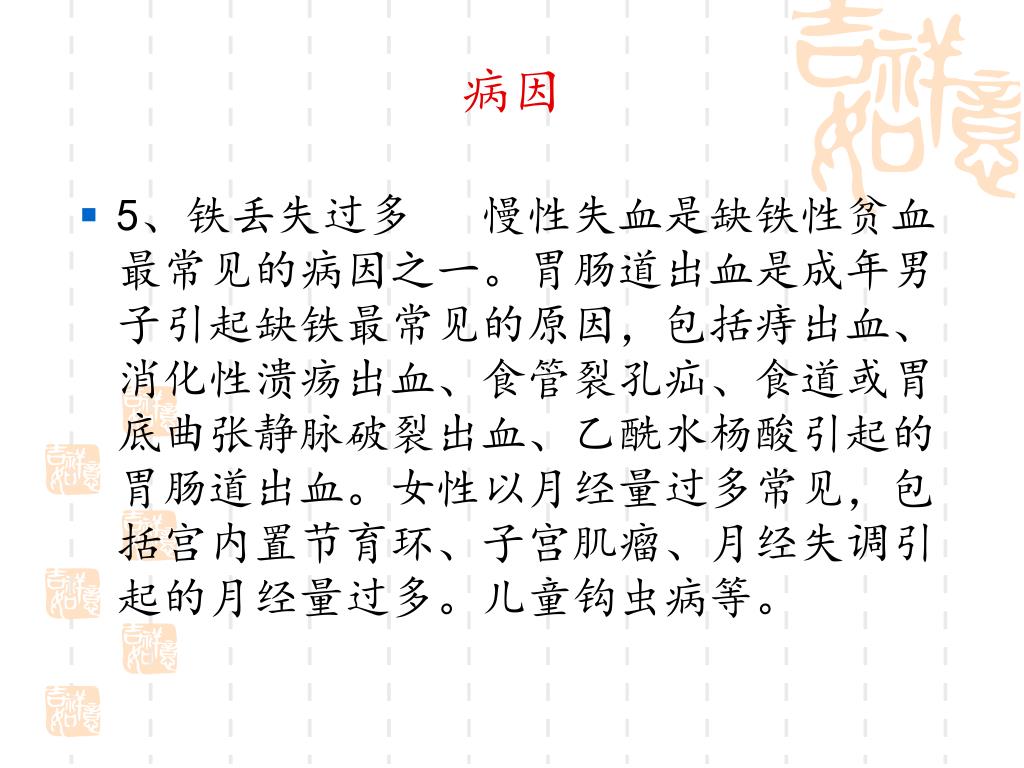 吉祥如意
病因
5、铁丢失过多 慢性失血是缺铁性贫血
最常见的病因之一。胃肠道出血是成年男
子引起缺铁最常见的原因，包括痔出血、
消化性溃疡出血、食管裂孔疝、食道或胃
底曲张静脉破裂出血、乙酰水杨酸引起的
胃肠道出血。女性以月经量过多常见，包
括宫内置节育环、子宫肌瘤、月经失调引
起的月经量过多。儿童钩虫病等。
吉祥如意
吉祥如意
吉祥如意
吉祥如意
吉祥如意
吉祥如意